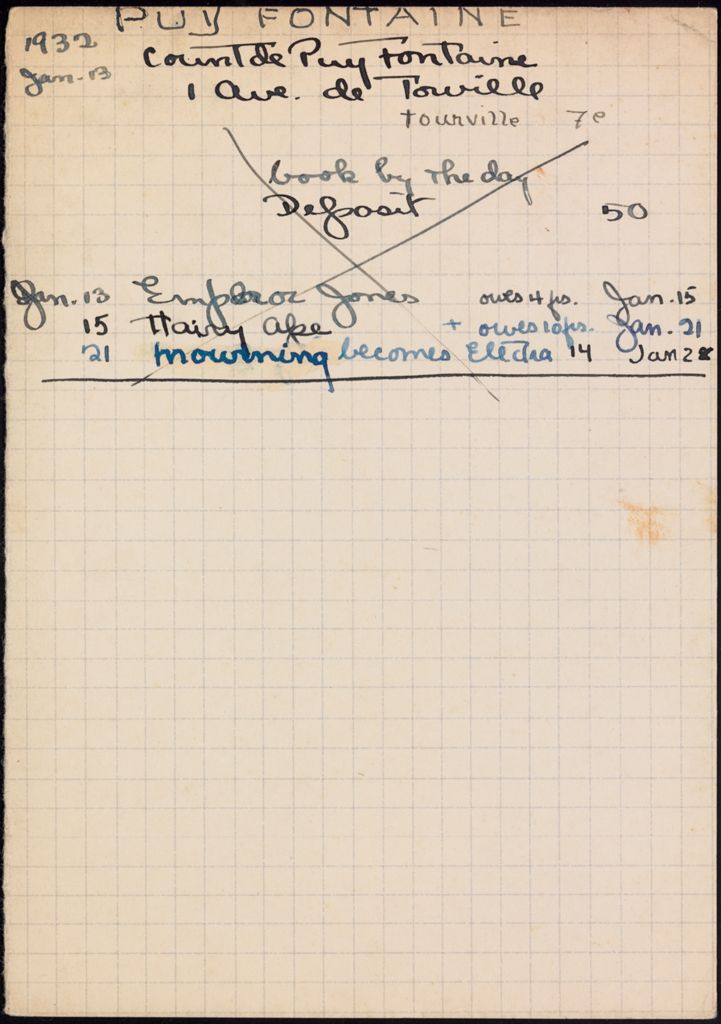 PUY FONTAINE
1932
Count de Puy Fontaine
Jan. 13
1 Ave. de Tourville
tourville 7e
book by the day
Deposit 50
Jan. 13 Emperor Jones owes 4 frs. Jan. 15
15 Hairy Ape + owes 10 frs. Jan. 21
21 mourning becomes Electra 14 Jan 28